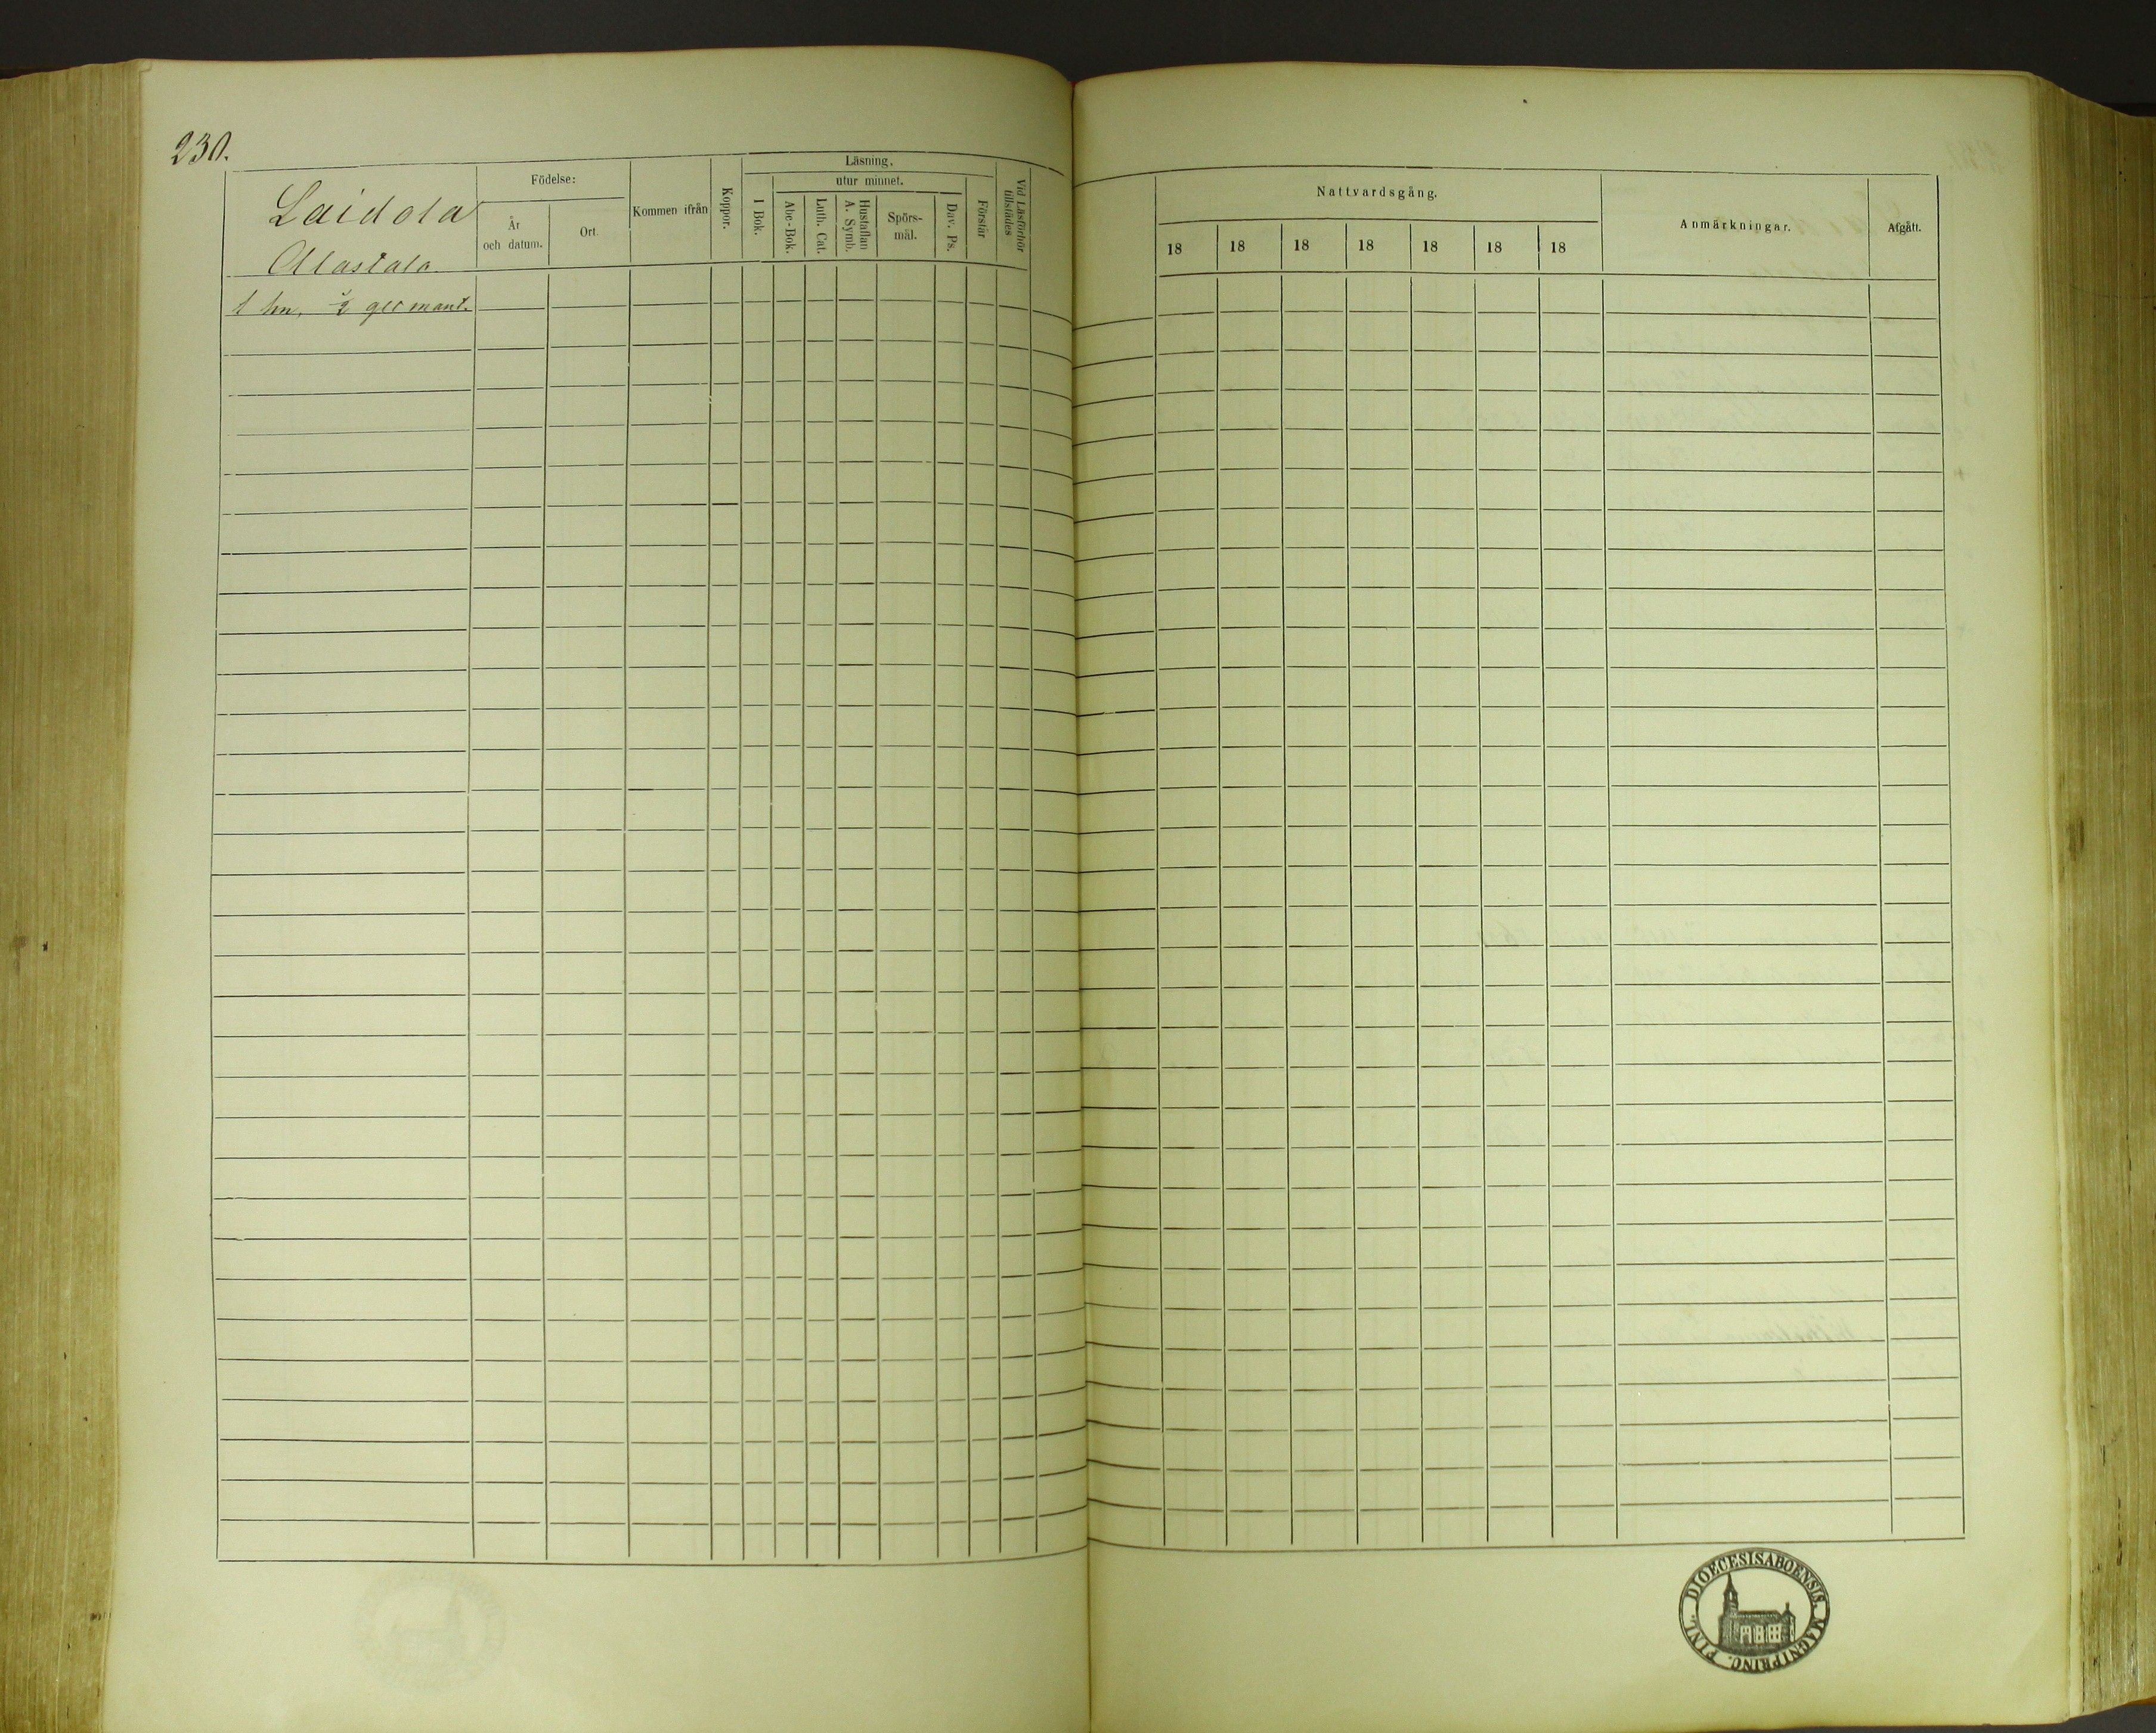 230.
Laidola
Alastalo
1 hn, ½ gl mant.
Födelse:
År
och datum.
Ort.
Kommen ifrån
Koppor.
Läsning.
utur minnet.
I Bok.
Abc-Bok.
Luth. Cat.
Hustaflan
A. Symb.
Spörs-
mål.
Dav. Ps.
Förstår
Vid Läsförhör
tillstädes
Nattvardsgång.
18 18 18 18 18 18 18
Anmärkningar.
Afgått.
DIOECESIS ABOENSIS. MAGNI PRINC. FINL.